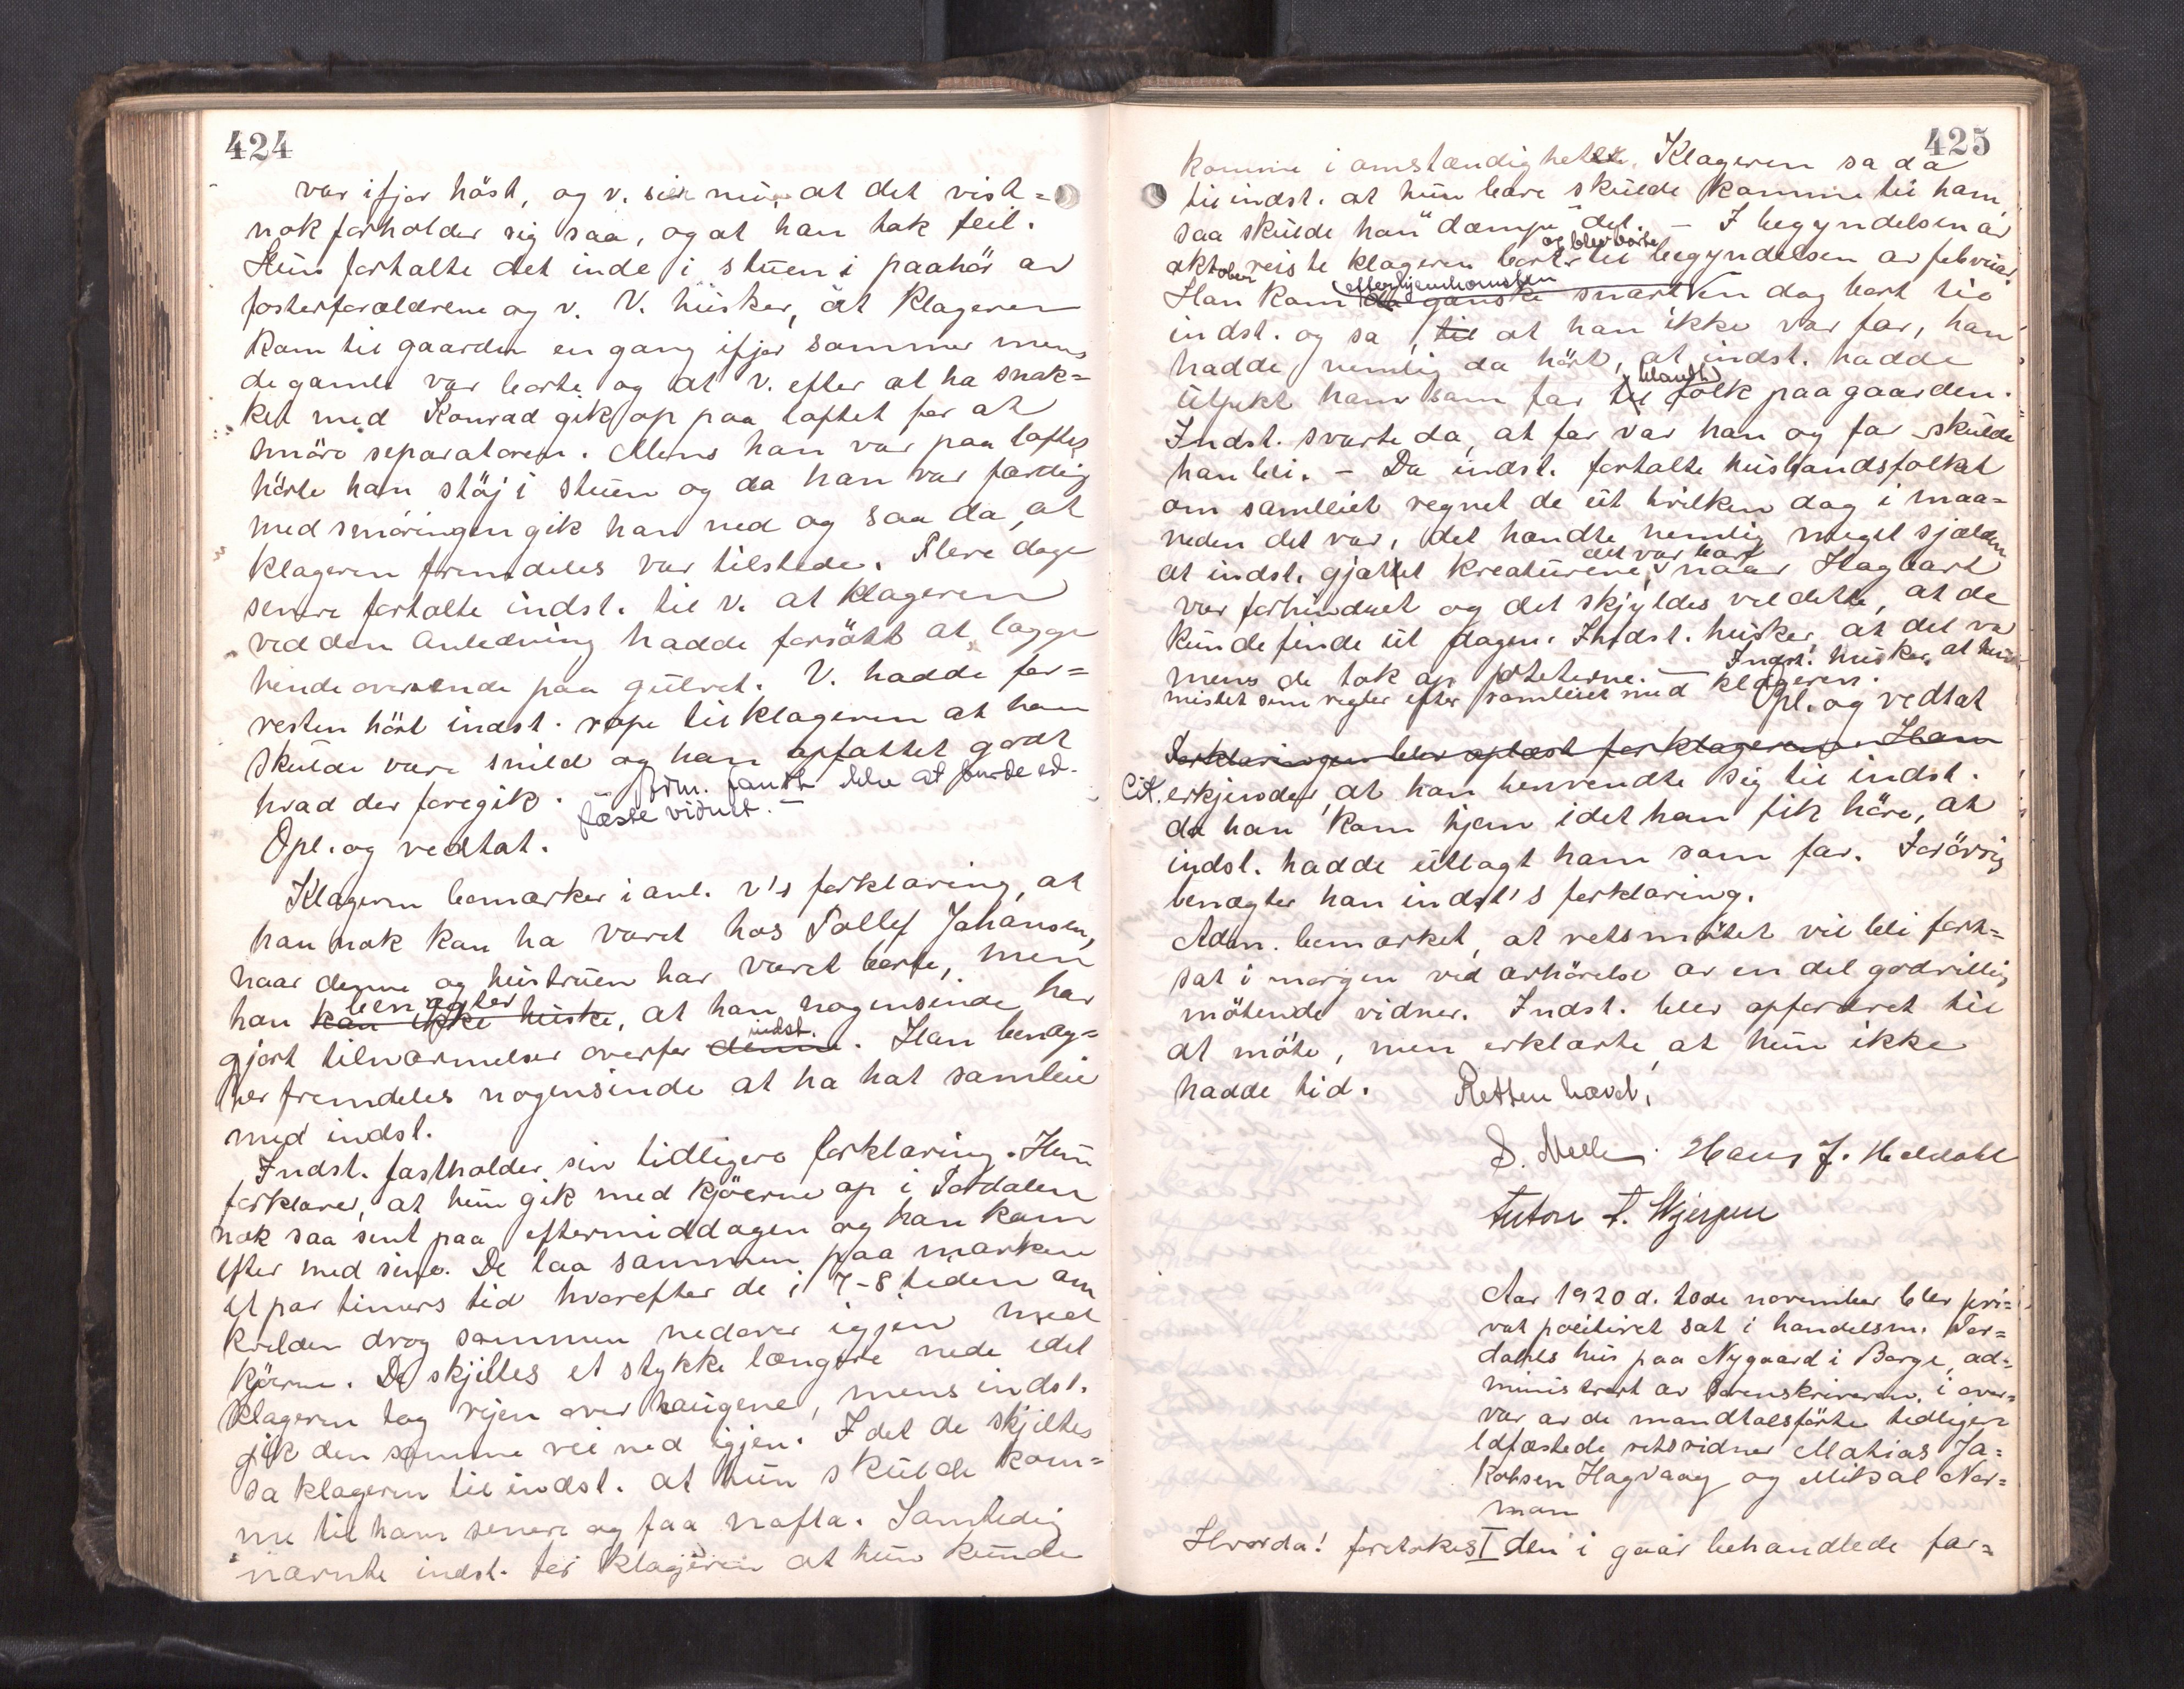 424
var ifjor höst, og v. sier nu, at det vist=
nok forholder sig saa, og at han tok feil.
Hun fortalte det inde i stuen i paahör av
fosterforældrene og v. V. husker, at klageren
kom til gaarden en gang ifjor sommer mens
de gamle var borte og at v. efter at ha snak=
ket med Konrad gik op paa loftet for at
smöre separatoren. Mens han var paa loftet
hörte han stöj i stuen og da han var færdig
med smöringen gik han ned og saa da, at
klageren fremdeles var tilstede. Flere dage
senere fortalte indst. til v. at klageren
ved den anledning hadde forsökt at lægge
hende overende paa gulvet. V. hadde for=
resten hört indst. rope til klageren at han
skulde være snild og han opfattet godt
hvad der foregik. Adm. fandt ikke at burde ed-
fæste vidnet. –
Opl. og vedtat.
Klageren bemærker i anl. v's forklaring, at
han nok kan ha været hos Tollef Johansen,
naar denne og hustruen har været borte, men
han kan ikke huske benægter, at han nogensinde har
gjort tilnærmelser overfor denne indst. Han benæg=
ter fremdeles nogensinde at ha hat samleie
med indst.
Indst. fastholder sin tidligere forklaring. Hun
forklarer, at hun gik med kjöerne op i Tordalen
nok saa sent paa eftermiddagen og han kom
efter med sine. De laa sammen paa marken
et par timers tid hvorefter de i 7-8 tiden om
kvelden drog sammen nedover igjen med
kjöerne. De skjiltes et stykke længere nede idet
klageren tog veien over haugene, mens indst.
gik den samme vei ned igjen. Idet de skjiltes
sa klageren til indst. at hun skulde kom=
me til ham senere og faa nafta. Samtidig
nævnte indst. til klageren at hun kunde
425
komme i omstændigheter. Klageren sa da
til indst. at hun bare skulde komme til ham,
saa skulde han "dæmpe" det. – I begyndelsen av
oktober reiste klageren bort og blev borte til begyndelsen av februar.
Han kom da ganske snart efter hjemkomsten en dag bort til
indst. og sa til at han ikke var far, han
hadde nemlig da hört, at indst. hadde
utpekt ham som far til blandt folk paa gaarden.
Indst. svarte da, at far var han og far skulde
han bli. – Da indst. fortalte husbandsfolket
om samleiet regnet de ut hvilken dag i maa=
neden det var, det hændte nemlig meget sjælden
at indst. gjættet kreaturene, det var bare naar Hagbart
var forhindret og det skjyldes vel dette, at de
kunde finde ut dagen. Indst. husker at det va
mens de tok op poteterne. – Indst. husker at hun
mistet sine regler efter samleiet med klageren.
Opl. og vedtat
Forklaringen blev oplæst for klageren. Han
Cit. erkjender, at han henvendte sig til indst.
da han kom hjem idet han fik höre, at
indst. hadde utlagt ham som far. Forövrig
benægter han indst's forklaring.
Adm. bemærket, at retsmötet vil bli fort=
sat i morgen ved avhörelse av en del godvillig
mötende vidner. Indst. blev opfordret til
at möte, men erklærte at hun ikke
hadde tid. Retten hævet.
Hans J. Heldahl
Anton
Aar 1920 d. 10de november blev pri=
vat politiret sat i handelsm. Tor=
dahls hus paa Nygaard i Borge, ad=
ministrert av sorenskriveren, i over=
vær av de mandtalsförte tidligere
edfæstede retsvidner Mathias Ja=
kobsen Hagvaag og Miksal Nor=
man
Hvorda! foretokes I den i gaar behandlede for=